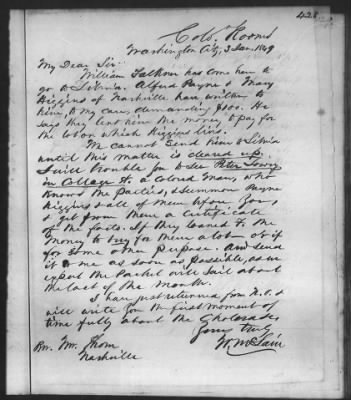 428
Colo. Rooms
Washington City, 3 Jan. 1849
My Dear Sir
William Falkner has come here to
go to Liberia. Alfred Payne & Mary
Higgins of Nashville have written to
him, to my care, demanding $00. He
says they lent him the money, to pay for
the lot on which Higgins lives.
We cannot send him to Liberia
until this matter is cleared up.
I will trouble you to see Peter Lowry
in College St. a colored man, who
knows the parties, & summon Payne
Higgins & all of them before you,
& get from them a certificate
of the facts. If they loaned to the
money to buy for them a lot or if
for some other purpose. And send
it to me as soon as possible, as we
expect the Packet will sail about
the last of the month.
I have just returned from N.O. &
will write you the first moment of
time fully about the
Yours truly
W. McLain
Rev. Wm.
Nashville